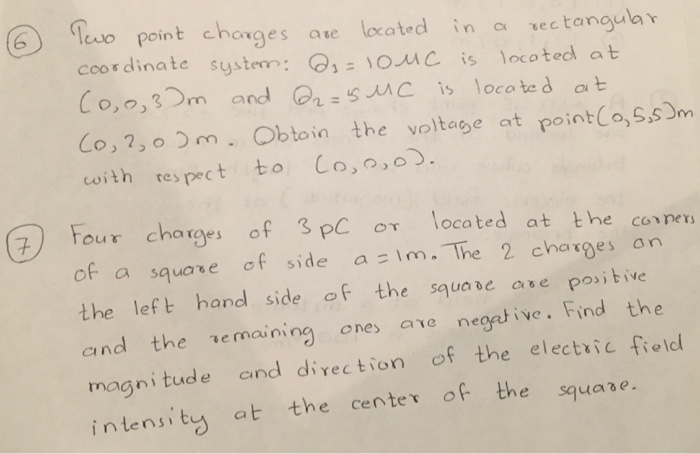 6 Two point charges are located in a rectangular
coordinate system: Q1 = 10 µC is located at
(0,0,3)m and Q2 = 5 µC is located at
(0,2,0)m. Obtain the voltage at point (0,5,5)m
with respect to (0,0,0).
7 Four charges of 3 pC or located at the corners
of a square of side a = 1m. The 2 charges on
the left hand side of the square are positive
and the remaining ones are negative. Find the
magnitude and direction of the electric field
intensity at the center of the square.